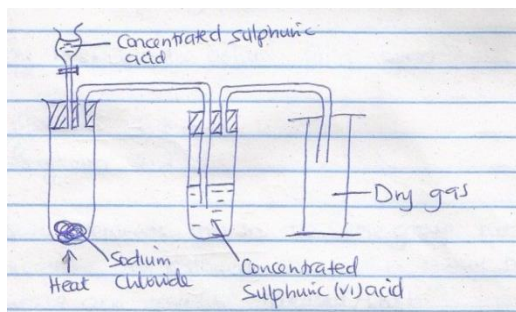 Concentrated sulphuric
acid
Dry gas
Sodium
Chloride
Heat
Concentrated
Sulphuric (VI) acid